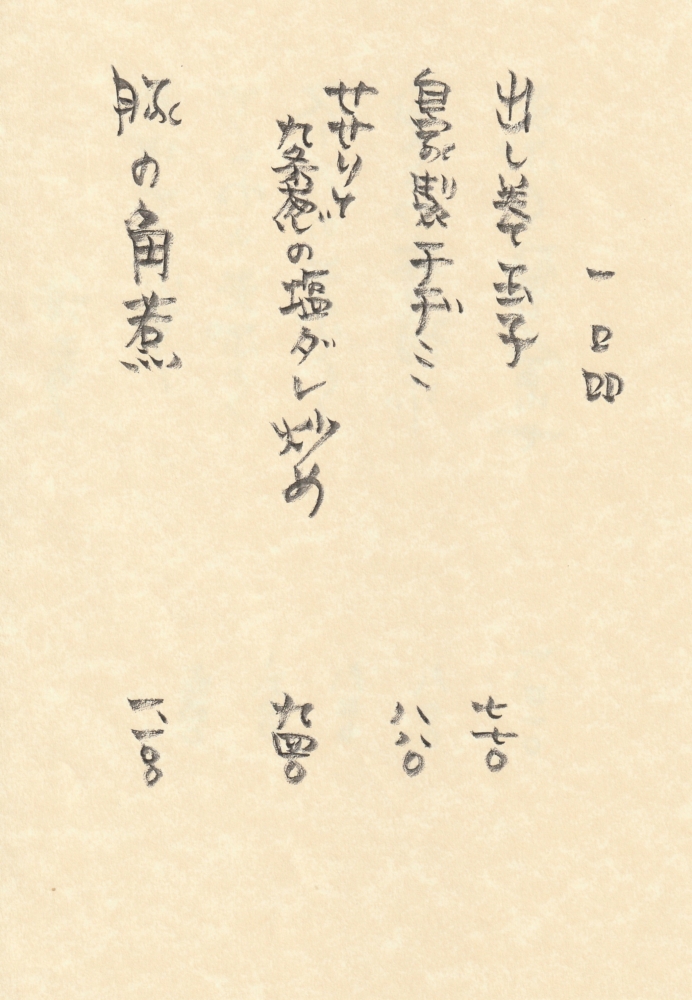 一品
出し巻き玉子
自家製チヂミ
せせりと
九条葱の塩ダレ炒め
豚の角煮
七七〇
八八〇
九四〇
一、一〇〇